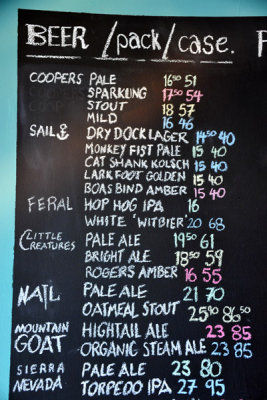 BEER / pack / case.
COOPERS PALE 16⁵⁰ 51
SPARKLING 17⁵⁰ 54
STOUT 18 57
MILD 16 46
SAIL DRY DOCK LAGER 14⁵⁰ 40
MONKEY FIST PALE 15 40
CAT SHANK KOLSCH 15 40
LARK FOOT GOLDEN 15 40
BOAS BIND AMBER 15 40
FERAL HOP HOG IPA 16
WHITE 'WITBIER' 20 68
LITTLE CREATURES PALE ALE 19⁵⁰ 61
BRIGHT ALE 18⁵⁰ 59
ROGERS AMBER 16 55
NAIL PALE ALE 21 70
OATMEAL STOUT 25⁹⁰ 86⁵⁰
MOUNTAIN GOAT HIGHTAIL ALE 23 85
ORGANIC STEAM ALE 23 85
SIERRA NEVADA PALE ALE 23 80
TORPEDO IPA 27 95